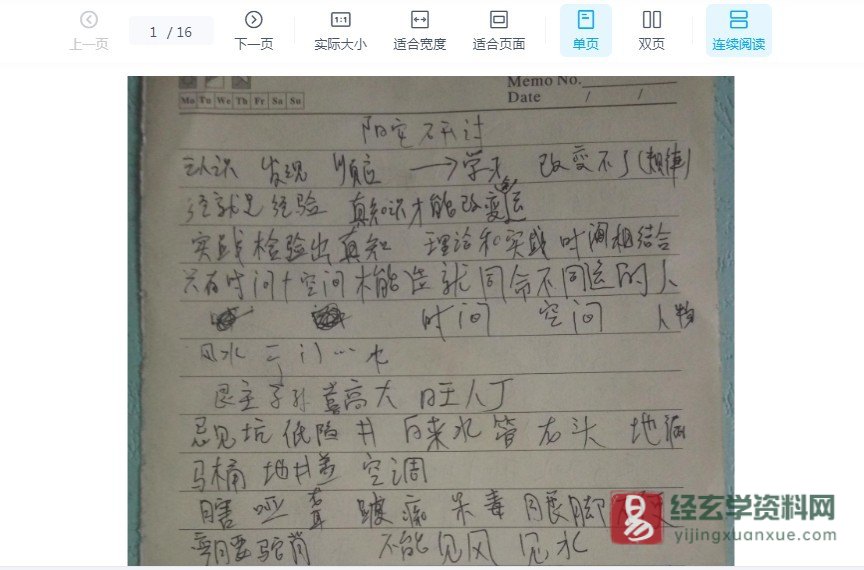 上一页
1 / 16
下一页
1:1
实际大小
适合宽度
适合页面
单页
双页
连续阅读
Memo No.
Mo Tu We Th Fr Sa Su
Date / /
阳宅研讨
认识 发现 顺应 →学习 改变不了(规律)
经就是经验 真知识才能改变运
实践检验出真知 理论和实践时间相结合
只有时间+空间才能造就同命不同运的人
时间 空间 人物
风水 三门…水
艮主子孙喜高大 旺人丁
忌见坑低陷井 自来水管石头 地漏
马桶 地井盖 空调
瞎 哑 聋 跛 痴 呆 毒 腿脚
弯腰驼背 不能见风 见水
易 经玄学资料网
yijingxuanxue.com